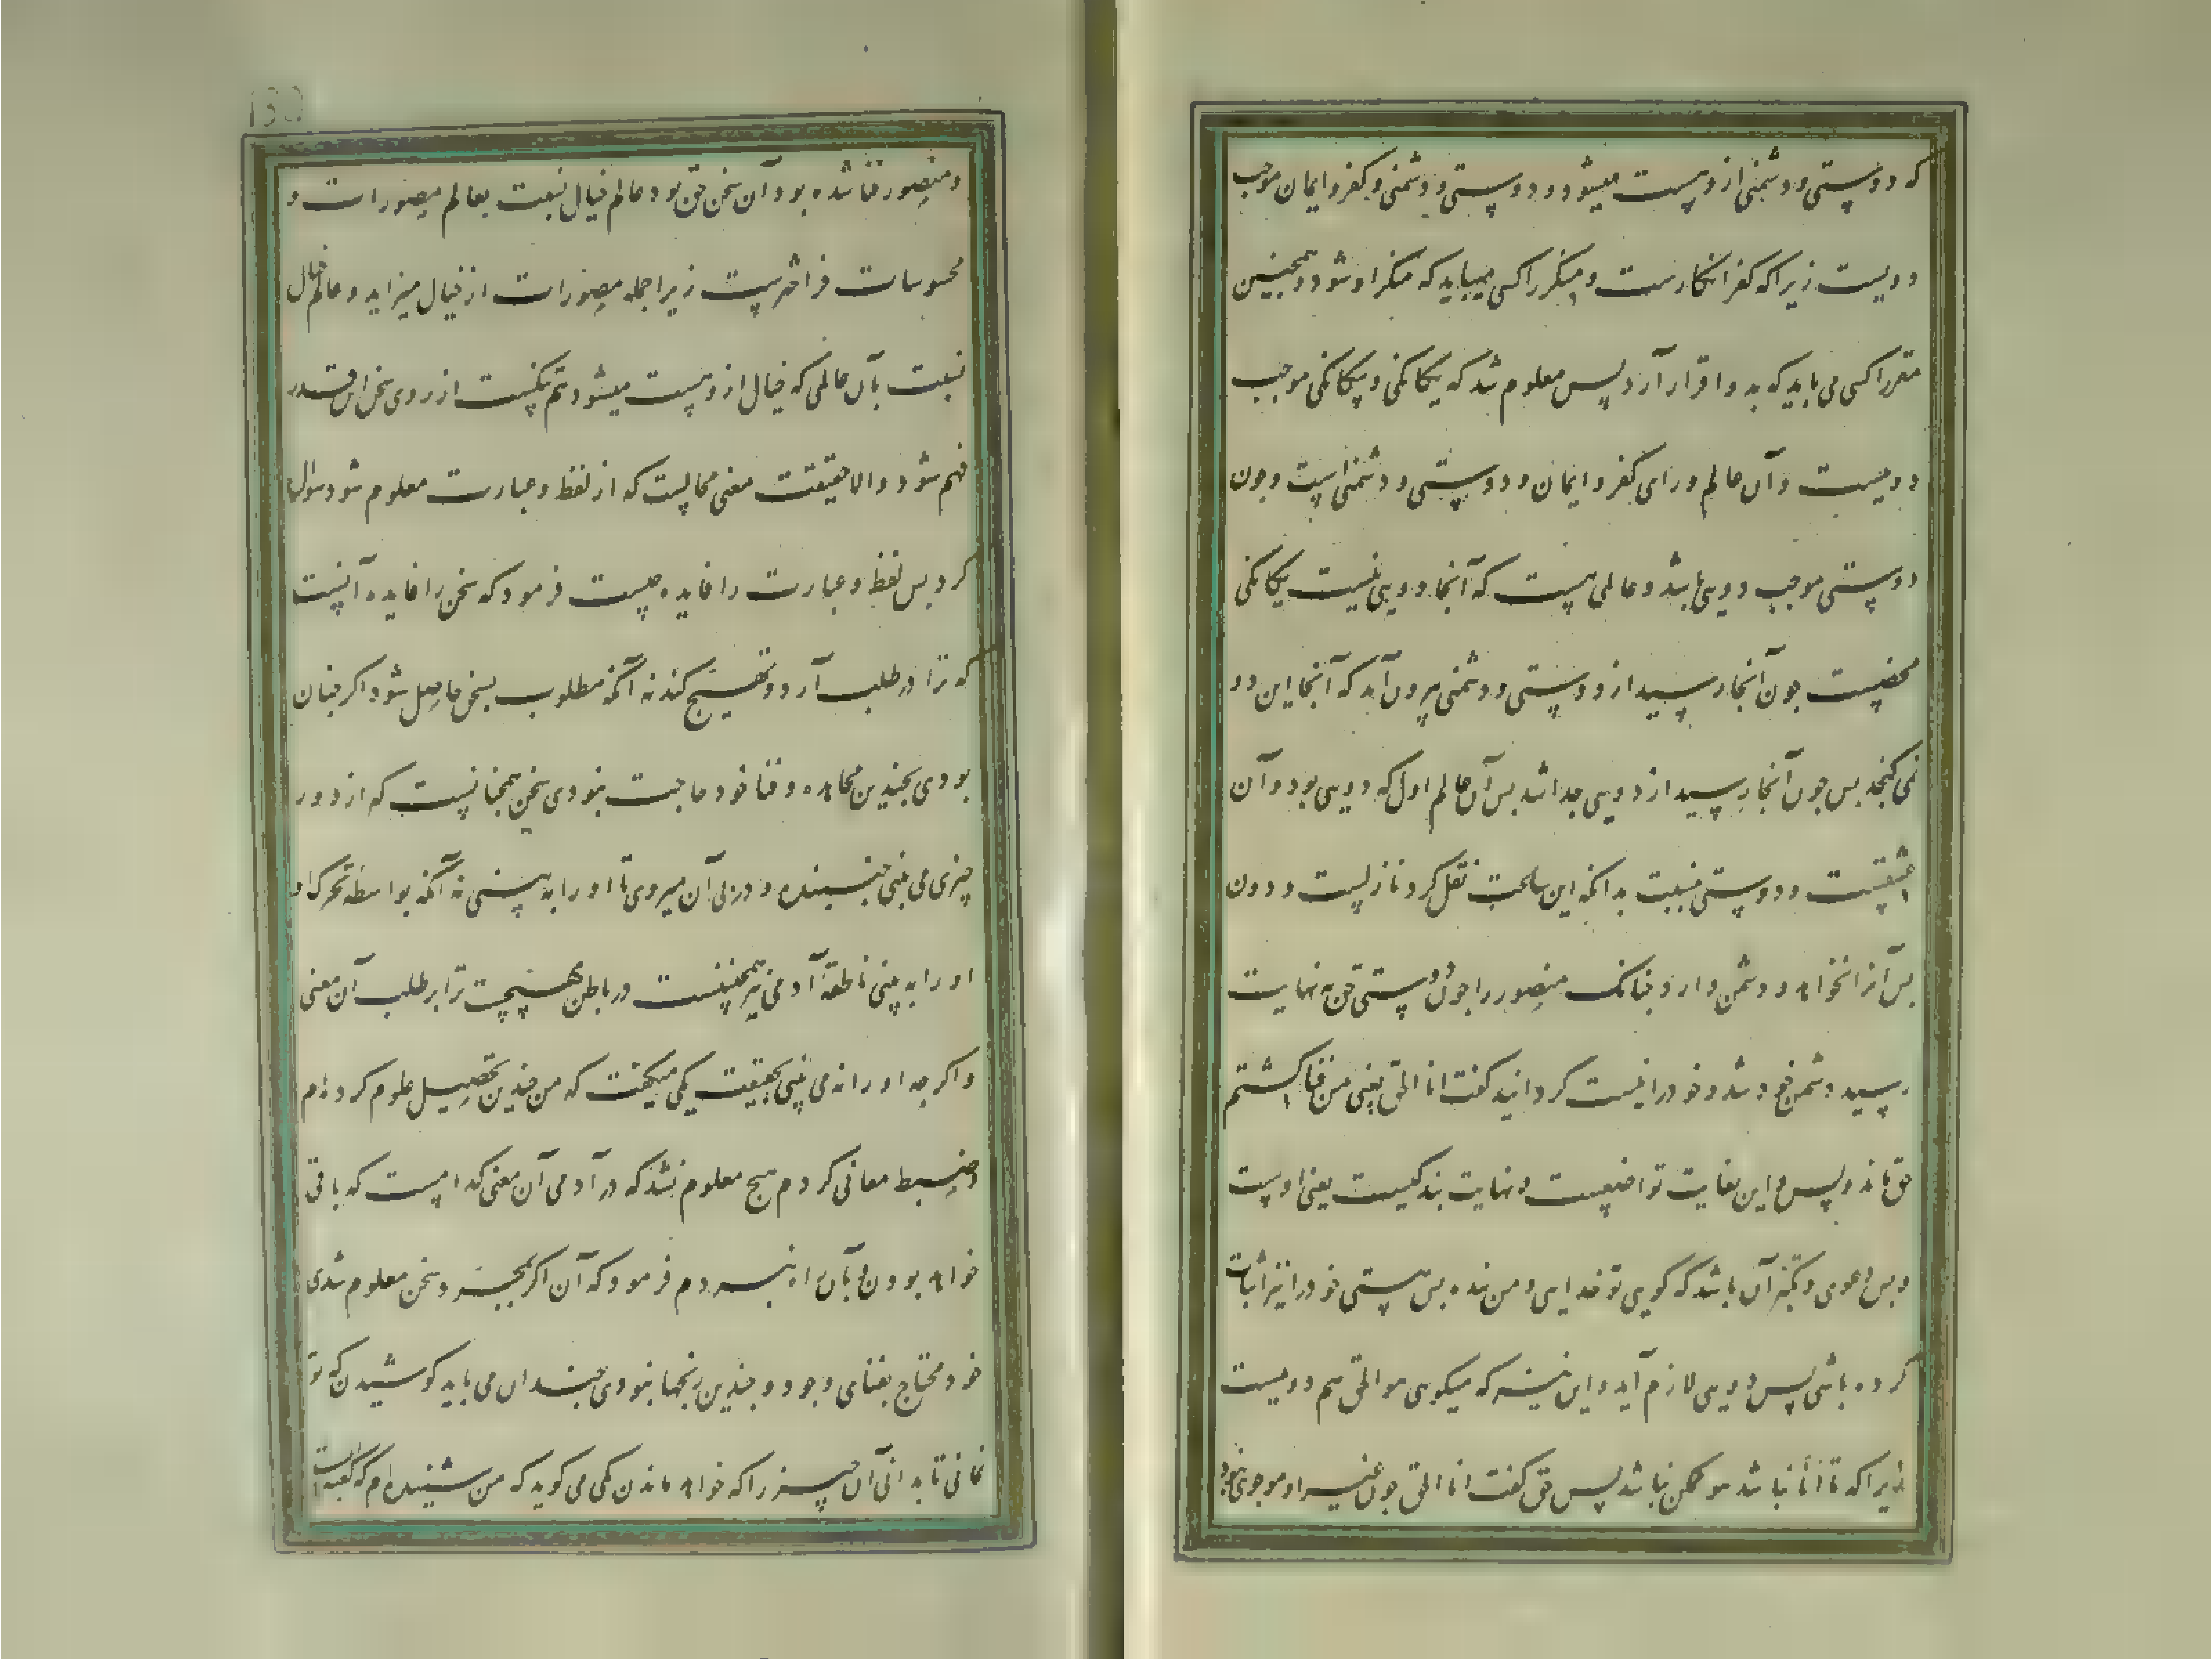 که دوستی و دشمنی ازو هست میشود و دوستی و دشمنی و کفر و ایمان موجب
دویست زیرا که کفر انکارست و منکر را کسی میباید که منکر او شود و همچنین
مقر را کسی می باید که بدو اقرار آرد پس معلوم شد که یکانکی و بیکانکی موجب
دویست و آن عالم ورای کفر و ایمان و دوستی و دشمنی است و جون
دوستی موجب دویی باشد و عالمی هست که آنجا دویی نیست یکانکی
محضست جون آنجا رسید از دوستی و دشمنی بیرون آمد که آنجا این دو
نمی کنجد بس جون آنجا رسید از دویی جدا شد بس آن عالم اول که دویی بود و آن
عشقست و دوستی نسبت بدانکه این ساعت نقل کرد نازلست و دون
بس آنرا نخواهد و دشمن دارد جنانک منصور را جون دوستی حق به نهایت
رسید دشمن خود شد و خود را نیست کردانید کفت انا الحق یعنی من فنا کشتم
حق ماند و بس و این بغایت تواضعست و نهایت بندکیست یعنی اوست
و بس دعوی و تکبر آن باشد که کویی تو خدایی و من بنده بس هستی خود را نیز اثبات
کرده باشی پس دویی لازم آید و این نیز که میکویی هو الحق هم دویست
زیرا که تا انا نباشد هو ممکن نباشد پس حق کفت انا الحق جون غیر او موجودی نبود
و منصور فنا شده بود آن سخن حق بود عالم خیال نسبت بعالم مصورات و
محسوسات فراخترست زیرا جمله مصورات از خیال میزاید و عالم خیال
نسبت بآن عالمی که خیال ازو هست میشود هم تنکست از روی سخن این قدر
فهم شود و الا حقیقت معنی محالست که از لفظ و عبارت معلوم شود سوال
کرد بس لفظ و عبارت را فایده چیست فرمود که سخن را فایده آنست
که ترا در طلب آرد و تهییج کند نه آنکه مطلوب بسخن حاصل شود اکر جنان
بودی بجندین مجاهده و فنا خود حاجت نبودی سخن همجنانست که از دور
چیزی می بینی جنبنده و در پی آن میروی تا او را به بینی نه آنکه بواسطه تحرک او
او را به بینی ناطقه آدمی نیز همچنینست در باطن مهیجست ترا بر طلب آن معنی
و اکرچه او را نمی بینی بحقیقت یکی میکفت که من جندین تحصیل علوم کردم
و ضبط معانی کردم هیچ معلوم نشد که در آدمی آن معنی کدامست که باقی
خواهد بودن و بآن راه نبردم فرمود که آن اکر بمجرد سخن معلوم شدی
خود محتاج بفنای وجود و جندین رنجها نبودی جندان می باید کوشیدن که تو
نمانی تا بدانی آن چیز را که خواهد ماندن یکی می کوید که من شنیده ام که کعبه ایست